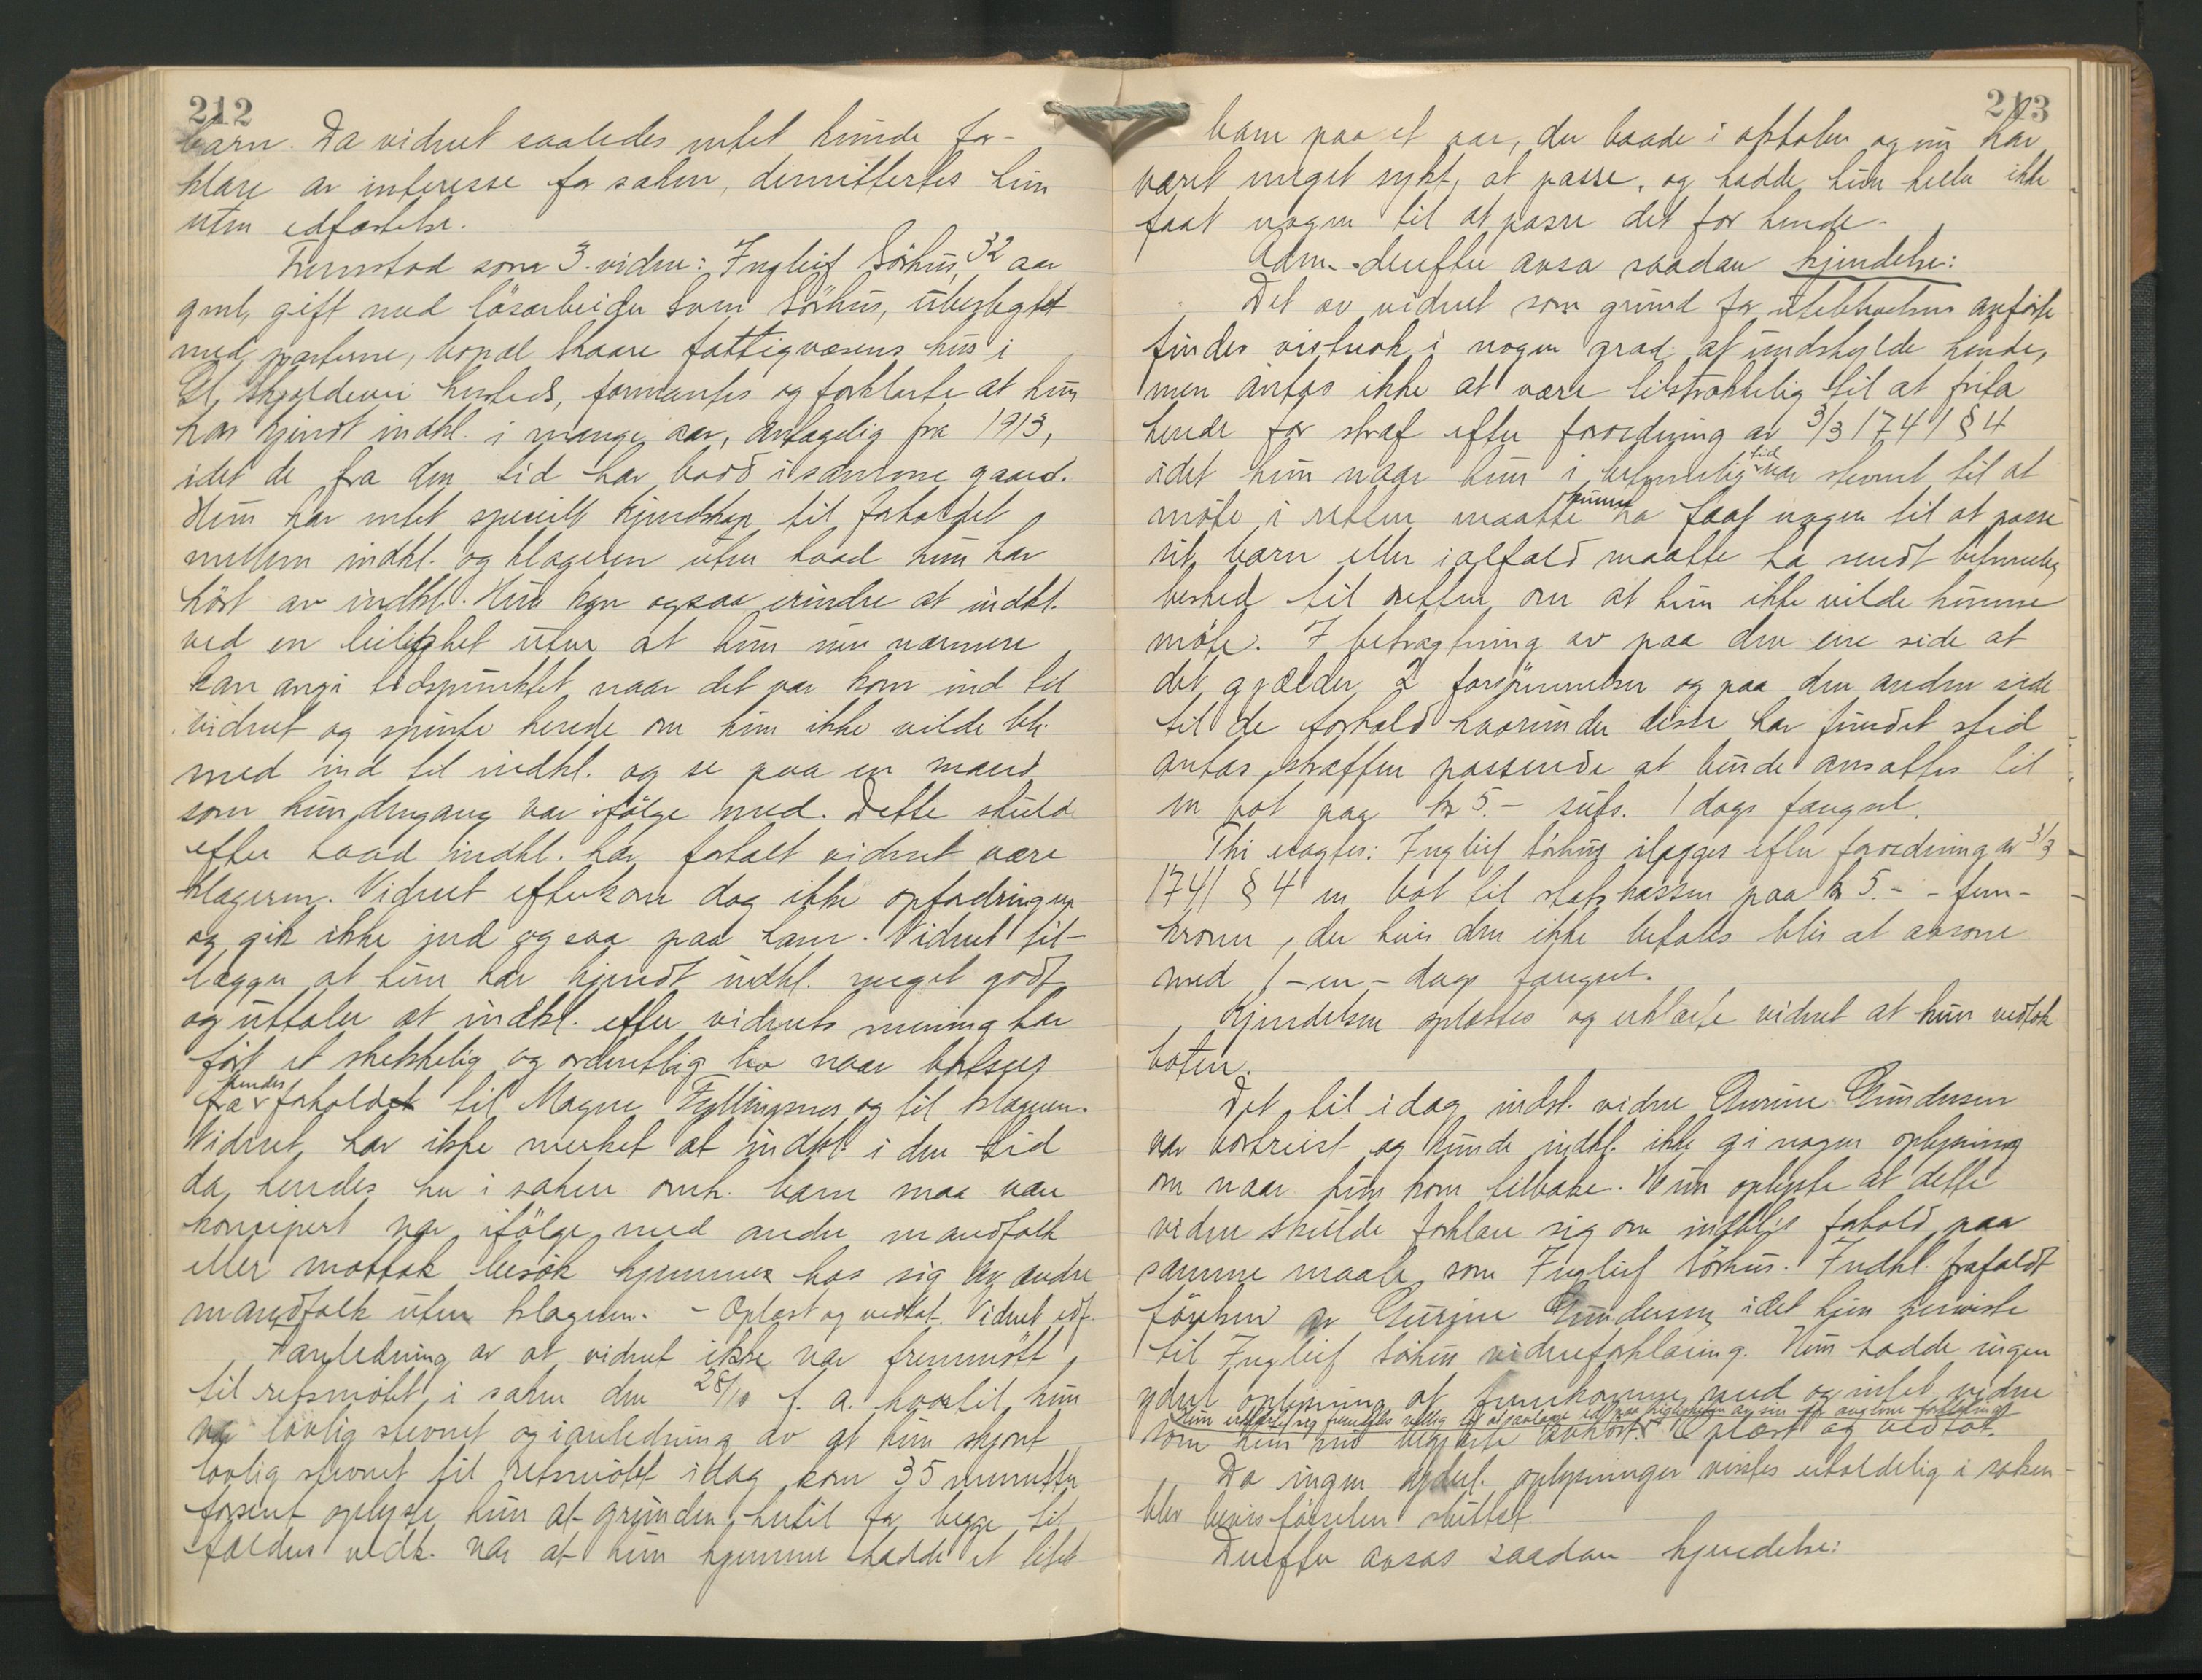 212
barn. Da vidnet saaledes intet kunde for-
klare av interesse for saken, dimittertes hun
uten edfæstelse.
Fremstod som 3. vidne: Ingleif Sörhus, 32 aar
gml, gift med lösarbeider Sven Sörhus, ubeslegtet
med parterne, bopæl Skaare fattigvæsens hus i
Skjoldevei hersteds, formantes og forklarte at hun
har kjendt indkl. i mange aar, antagelig fra 1913,
idet de fra den tid har bodd i samme gaard.
Hun har intet specielt kjendskap til forholdet
mellem indkl. og klageren uten hvad hun har
hört av indkl. Hun kan ogsaa erindre at indkl.
ved en leilighet uten at hun nu nærmere
kan angi tidspunktet naar det var kom ind til
vidnet og spurte hende om hun ikke vilde bli
med ind til indkl. og se paa en mand
som hun dengang var ifölge med. Dette skulde
efter hvad indkl. har fortalt vidnet være
klageren. Vidnet efterkom dog ikke opfordringen
og gik ikke ind og saa paa ham. Vidnet til-
lægger at hun har kjendt indkl. meget godt
og uttaler at indkl. efter vidnets mening har
fört et skikkelig og ordentlig liv naar bortsees
fra hendes forhold til Magne Fyllingsnes og til klageren.
Vidnet har ikke merket at indkl. i den tid
da hendes her i saken omh. barn maa være
koncipert var ifölge med andre mandfolk
eller mottok besök hjemme hos sig av andre
mandfolk uten klageren. - Oplæst og vedtat. Vidnet edf.
I anledning av at vidnet ikke var fremmött
til retsmötet i saken den 28/10 f. a. hvortil hun
var lovlig stevnet og i anledning av at hun skjönt
lovlig stevnet til retsmötet idag kom 35 minutter
forsent oplyste hun at grunden hertil for begge til
fælders vedk. var at hun hjemme hadde et litet
213
barn paa et aar, der baade i oktober og nu har
været meget sykt, at passe, og hadde hun heller ikke
faat nogen til at passe det for hende.
Adm. derefter avsa saadan kjendelse:
Det av vidnet som grund for uteblivelsen anförte
findes vistnok i nogen grad at undskylde hende,
men antas ikke at være tilstrækkelig til at frita
hende for straf efter forordning av 3/3 1741 § 4
idet hun naar hun i betimelig tid var stevnet til at
möte i retten maatte kunne ha faat nogen til at passe
sit barn eller ialfald maatte ha sendt betimelig
besked til retten om at hun ikke vilde kunne
möte. I betragtning av paa den ene side at
det gjælder 2 forsömmelser og paa den anden side
til de forhold hvorunder disse har fundet sted
antas straffen passende at kunde ansættes til
en bot paa kr 5.- subs. 1 dags fængsel.
Thi eragtes: Ingleif Sörhus ilægges efter forordning av 3/3
1741 § 4 en bot til statskassen paa kr 5.- - fem-
kroner, der hvis den ikke betales blir at avsone
med 1 - en - dags fængsel.
Kjendelsen oplæstes og erklærte vidnet at hun vedtok
boten.
Det til idag indst. vidne Gurine Gundersen
var bortreist og kunde indkl. ikke gi nogen oplysning
om naar hun kom tilbake. Hun oplyste at dette
vidne skulde forklare sig om indkl.s forhold paa
samme maate som Ingleif Sörhus. Indkl. frafaldt
förelsen av Gurine Gundersen idet hun henviste
til Ingleif Sörhus vidneforklaring. Hun hadde ingen
yderl. oplysning at fremkomme med og intet vidne
Hun erklærte sig fremdeles villig til at avlægge ed paa rigtigheten av sin avgivne forklaring
som hun nu begjærte avhört. Oplæst og vedtat.
Da ingen yderl. oplysninger vistes erholdelig i saken
blev bevisförselen sluttet.
Derefter avsas saadan kjendelse: